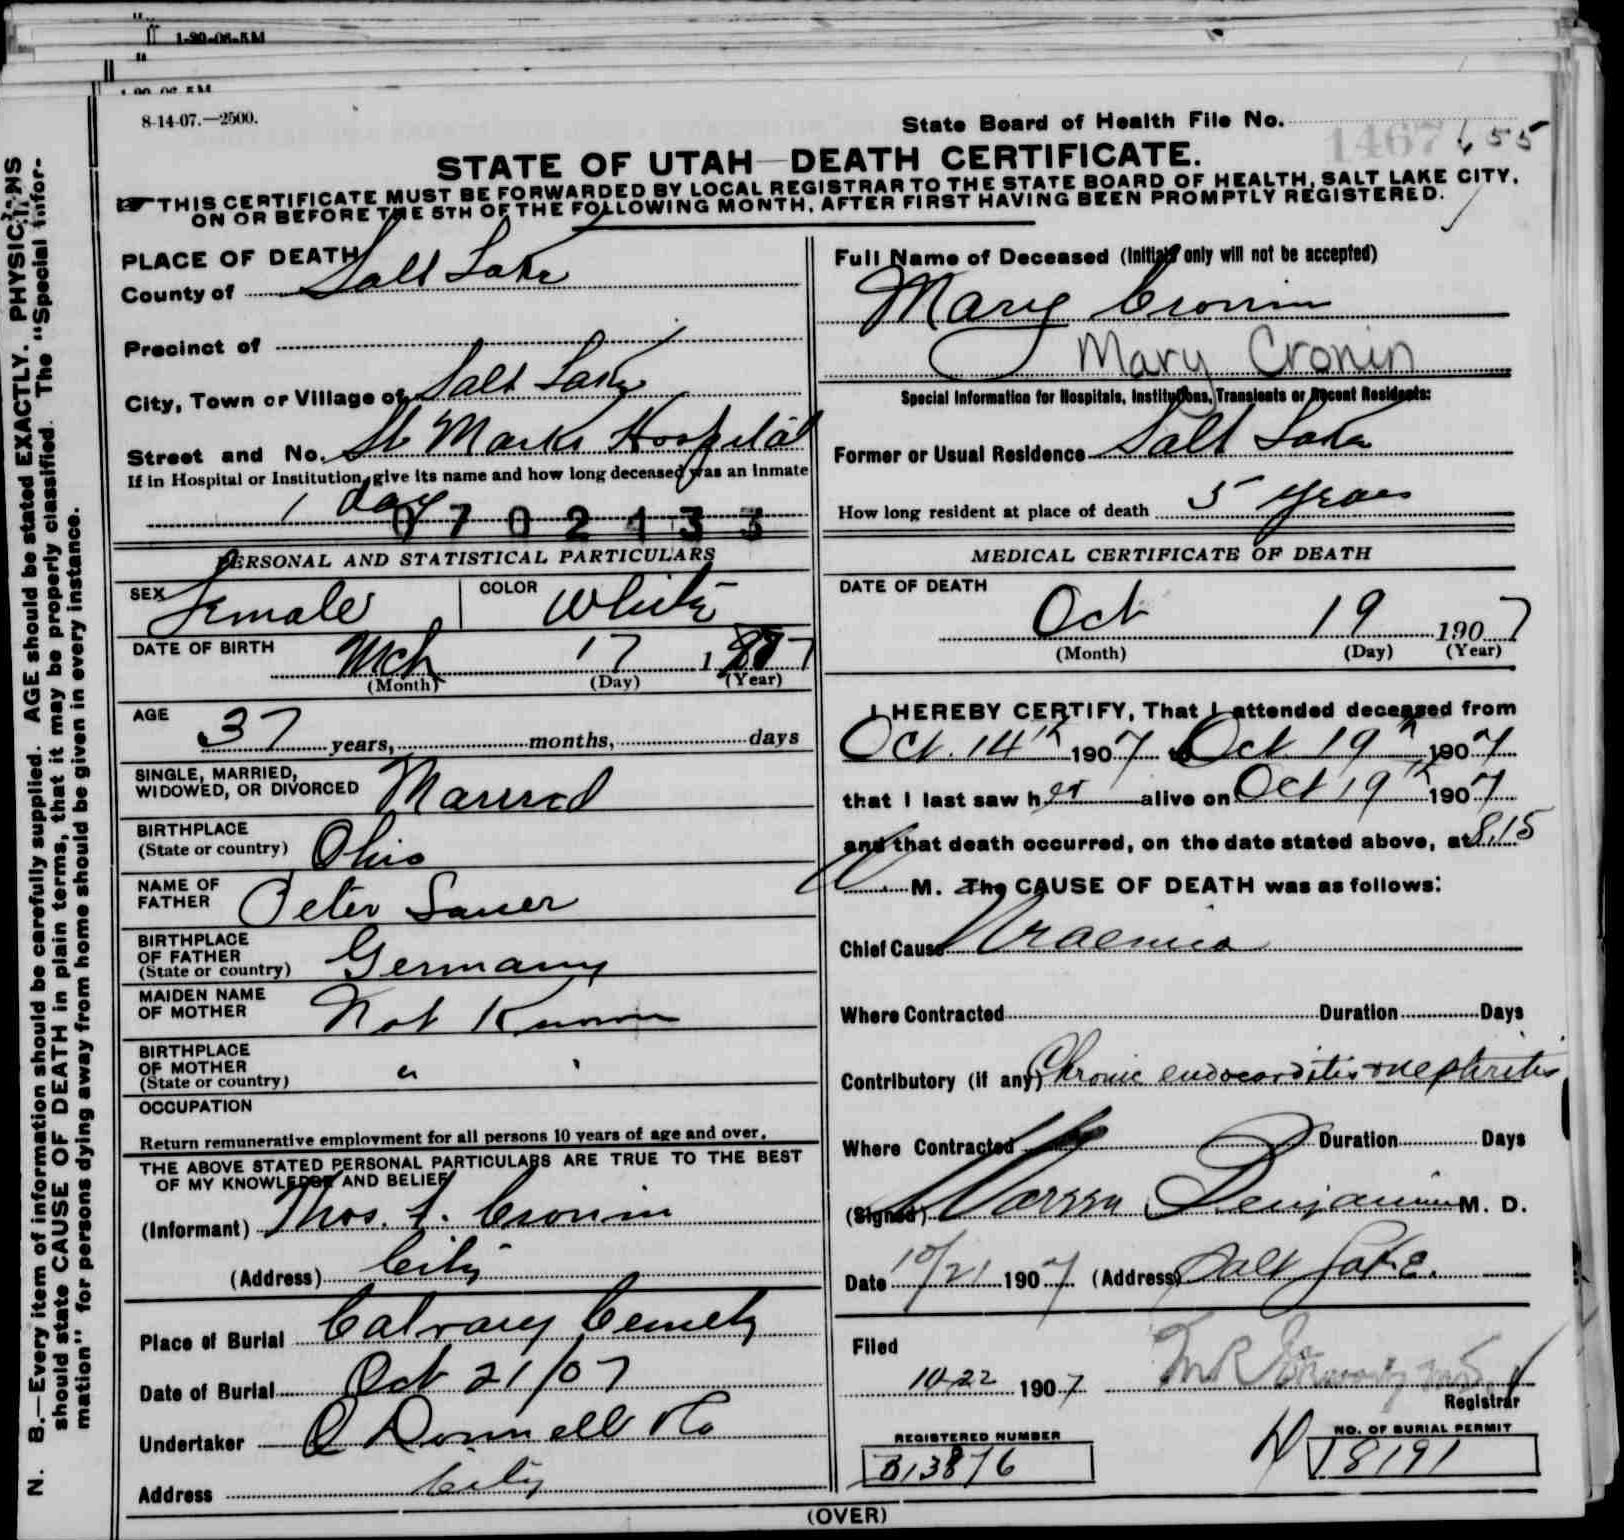 1-20-06-5M
8-14-07.—2500.
State Board of Health File No. 1467 655
STATE OF UTAH—DEATH CERTIFICATE.
THIS CERTIFICATE MUST BE FORWARDED BY LOCAL REGISTRAR TO THE STATE BOARD OF HEALTH, SALT LAKE CITY,
ON OR BEFORE THE 5TH OF THE FOLLOWING MONTH, AFTER FIRST HAVING BEEN PROMPTLY REGISTERED.
PLACE OF DEATH
County of Salt Lake
Precinct of
City, Town or Village of Salt Lake
Street and No. St Marks Hospital
If in Hospital or Institution, give its name and how long deceased was an inmate
1 day
0702133
PERSONAL AND STATISTICAL PARTICULARS
SEX Female COLOR White
DATE OF BIRTH Mch 17 1
(Month) (Day) (Year)
AGE 37 years, months, days
SINGLE, MARRIED,
WIDOWED, OR DIVORCED Married
BIRTHPLACE
(State or country) Ohio
NAME OF
FATHER Peter Sauer
BIRTHPLACE
OF FATHER
(State or country) Germany
MAIDEN NAME
OF MOTHER Not Known
BIRTHPLACE
OF MOTHER
(State or country) " "
OCCUPATION
Return remunerative employment for all persons 10 years of age and over.
THE ABOVE STATED PERSONAL PARTICULARS ARE TRUE TO THE BEST
OF MY KNOWLEDGE AND BELIEF
(Informant) Thos. Cronin
(Address) City
Place of Burial Calvary Cemety
Date of Burial Oct 21/07
Undertaker O Donnell & Co
Address City
Full Name of Deceased (Initials only will not be accepted)
Mary Cronin
Mary Cronin
Special Information for Hospitals, Institutions, Transients or Recent Residents:
Former or Usual Residence Salt Lake
How long resident at place of death 5 years
MEDICAL CERTIFICATE OF DEATH
DATE OF DEATH
Oct 19 1907
(Month) (Day) (Year)
I HEREBY CERTIFY, That I attended deceased from
Oct. 14th 1907 to Oct 19th 1907
that I last saw her alive on Oct 19th 1907
and that death occurred, on the date stated above, at 8.15
M. The CAUSE OF DEATH was as follows:
Chief Cause Uraemia
Where Contracted Duration Days
Contributory (if any) Chronic endocarditis & nephritis
Where Contracted Duration Days
(Signed) Benjamin M. D.
Date 10/21 1907 (Address) Salt Lake.
Filed
10-22 1907
Registrar
REGISTERED NUMBER
B13876
NO. OF BURIAL PERMIT
18191
(OVER)
N. B.—Every item of information should be carefully supplied. AGE should be stated EXACTLY. PHYSICIANS
should state CAUSE OF DEATH in plain terms, that it may be properly classified. The "Special Infor-
mation" for persons dying away from home should be given in every instance.